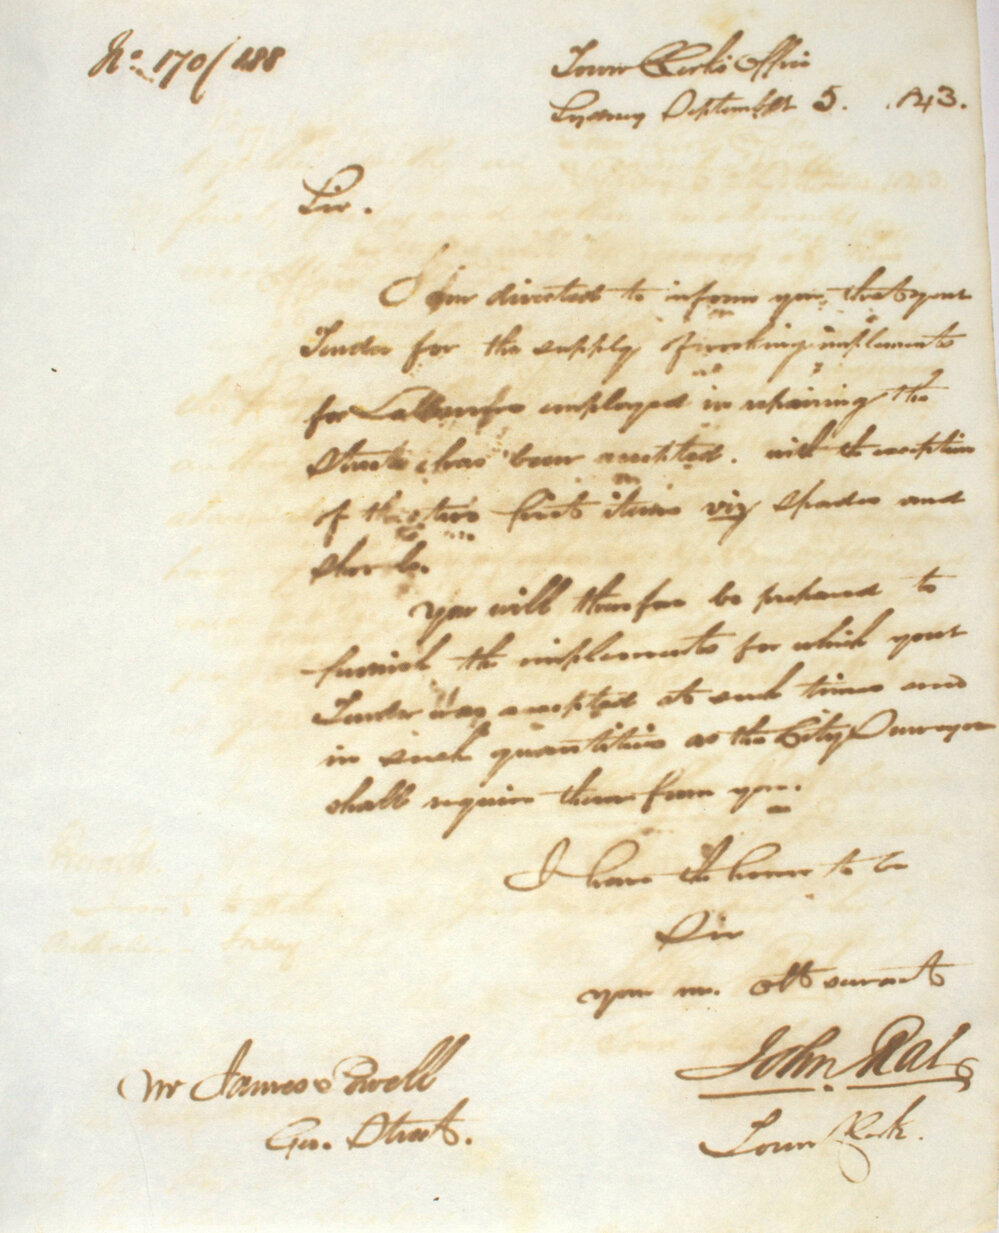 No. 170/188
Town Clerk's Office
Sydney September 5. 1843.
Sir.
I am directed to inform you, that your
Tender for the supply of working implements
for Labourers employed in repairing the
Streets has been accepted. with the exception
of the two first items viz Spades and
Shovels.
You will therefore be prepared to
furnish the implements for which your
Tender was accepted at such times and
in such quantities as the City Surveyor
shall require them from you.
I have the honor to be
Sir
your mo. obt servant
John Rae
Town Clerk.
Mr James Powell
Geo. Street.